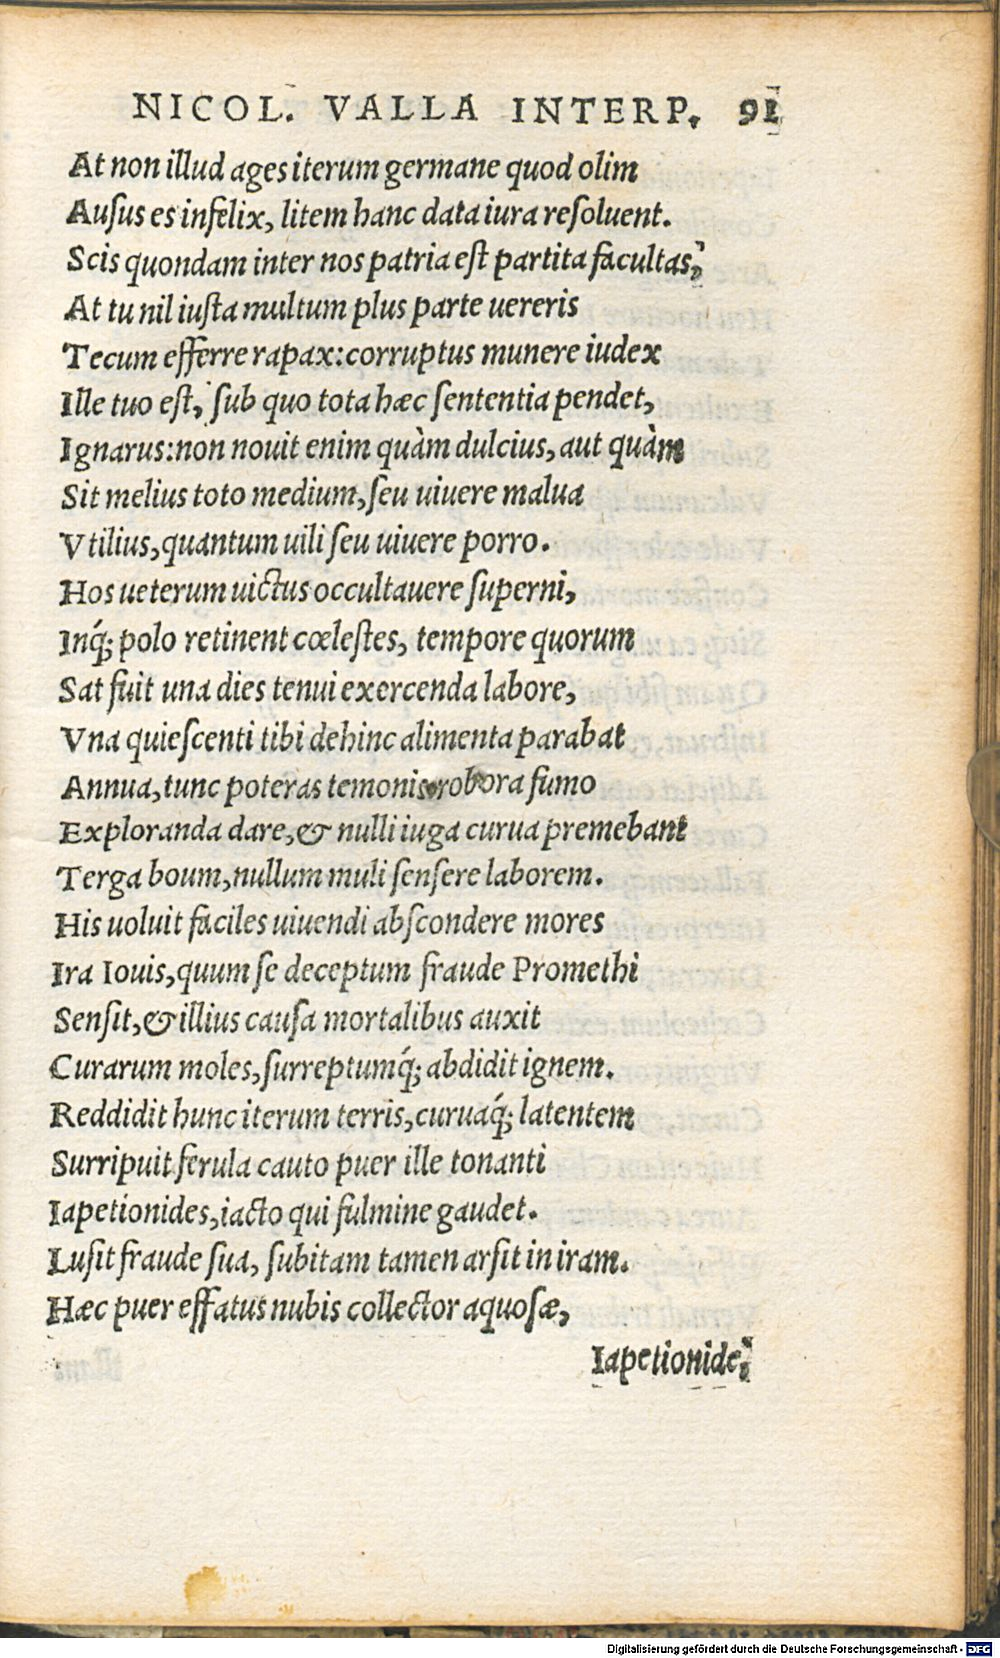 NICOL. VALLA INTERP. 91
At non illud ages iterum germane quod olim
Ausus es infelix, litem hanc data iura resoluent.
Scis quondam inter nos patria est partita facultas,
At tu nil iusta multum plus parte uereris
Tecum efferre rapax: corruptus munere iudex
Ille tuo est, sub quo tota hæc sententia pendet,
Ignarus: non nouit enim quàm dulcius, aut quàm
Sit melius toto medium, seu uiuere malua
Vtilius, quantum uili seu uiuere porro.
Hos ueterum uictus occultauere superni,
Inq́; polo retinent cœlestes, tempore quorum
Sat fuit una dies tenui exercenda labore,
Vna quiescenti tibi dehinc alimenta parabat
Annua, tunc poteras temonis robora fumo
Exploranda dare, & nulli iuga curua premebant
Terga boum, nullum muli sensere laborem.
His uoluit faciles uiuendi abscondere mores
Ira Iouis, quum se deceptum fraude Promethi
Sensit, & illius causa mortalibus auxit
Curarum moles, surreptumq́; abdidit ignem.
Reddidit hunc iterum terris, curuaq́; latentem
Surripuit ferula cauto puer ille tonanti
Iapetionides, iacto qui fulmine gaudet.
Lusit fraude sua, subitam tamen arsit in iram.
Hæc puer effatus nubis collector aquosæ,
Iapetionide,
Digitalisierung gefördert durch die Deutsche Forschungsgemeinschaft - DFG